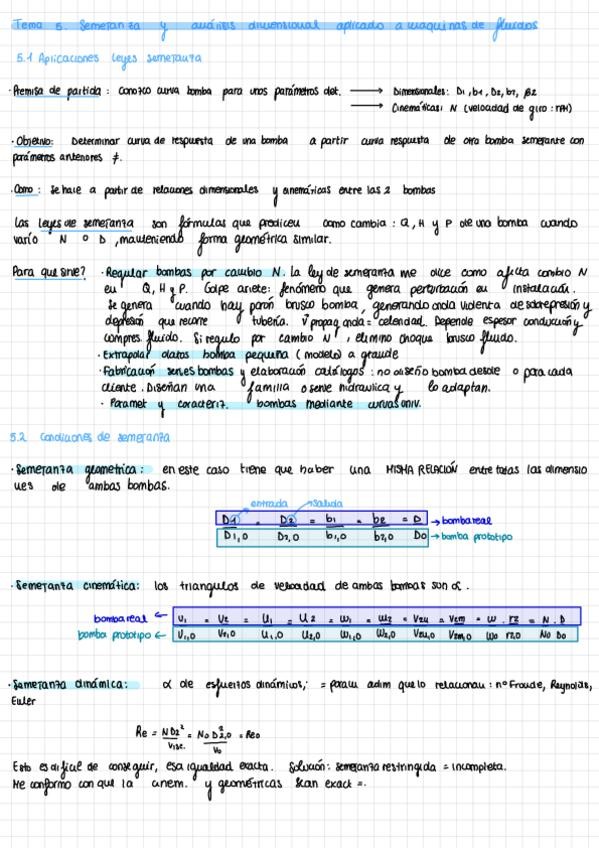 Tema 5. Semeranza y análisis dimensional aplicado a maquinas de fluidos
5.1 Aplicaciones leyes semeranza
· Premisa de partida: conozco curva bomba para unos parámetros det. → Dimensionales: D1, b1, D2, b2, β2
→ Cinemáticas: N (velocidad de giro: rpm)
· Objetivo: Determinar curva de respuesta de una bomba a partir curva respuesta de otra bomba semejante con
parámetros anteriores ≠.
· Como: Se hace a partir de relaciones dimensionales y cinemáticas entre las 2 bombas
Las leyes de semeranza son fórmulas que predicen como cambia: Q, H y P de una bomba cuando
varío N o D, manteniendo forma geométrica similar.
Para que sirve? · Regular bombas por cambio N. La ley de semeranza me dice como afecta cambio N
en Q, H y P. Golpe ariete: fenómeno que genera perturbación en instalación.
Se genera cuando hay parón brusco bomba, generando onda violenta de sobrepresión y
depresión que recorre tubería. V propag onda = celeridad. Depende espesor conducción y
compres. fluido. Si regulo por cambio N, elimino choque brusco fluido.
· Extrapolar datos bomba pequeña (modelo) a grande
· Fabricación series bombas y elaboración catálogos: no diseño bomba desde 0 para cada
cliente. Diseñan una familia o serie hidraulica y lo adaptan.
· Paramet y caracteriz. bombas mediante curvas univ.
5.2 Condiciones de semeranza
· Semeranza geometrica: en este caso tiene que haber una MISMA RELACIÓN entre todas las dimensio
nes de ambas bombas.
entrada salida
D1 = D2 = b1 = b2 = D → bomba real
D1,0 D2,0 b1,0 b2,0 D0 → bomba prototipo
· Semeranza cinemática: los triangulos de velocidad de ambas bombas son α.
bomba real ← V1 = V2 = U1 = U2 = W1 = W2 = V2u = V2m = w · r2 = N · D
bomba prototipo ← V1,0 V2,0 U1,0 U2,0 W1,0 W2,0 V2u,0 V2m,0 w0 r2,0 N0 D0
· Semeranza dinámica: α de esfuerzos dinámicos; = param adim que lo relacionan: nº Froude, Reynolds,
Euler
Re = ND2² = N0 D²2,0 = Re0
Visc. V0
Esto es dificil de conseguir, esa igualdad exacta. Solución: semeranza restringida = incompleta.
Me conformo con que la cinem. y geométricas sean exact =.